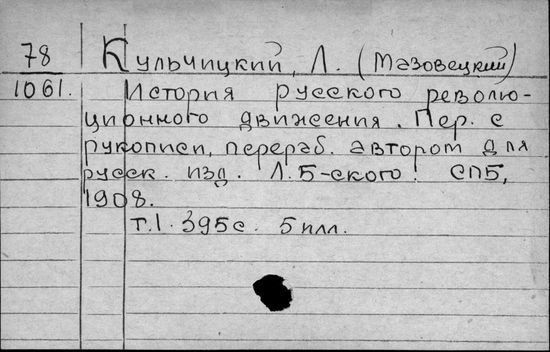 78 Кульчицкий, Л. (Мазовецкий)
1061. История русского револю-
ционного движения. Пер. с
рукописи, перераб. автором для
русск. изд. Л. Б-ского. СПБ,
1908.
т.1. 395с. 5 илл.